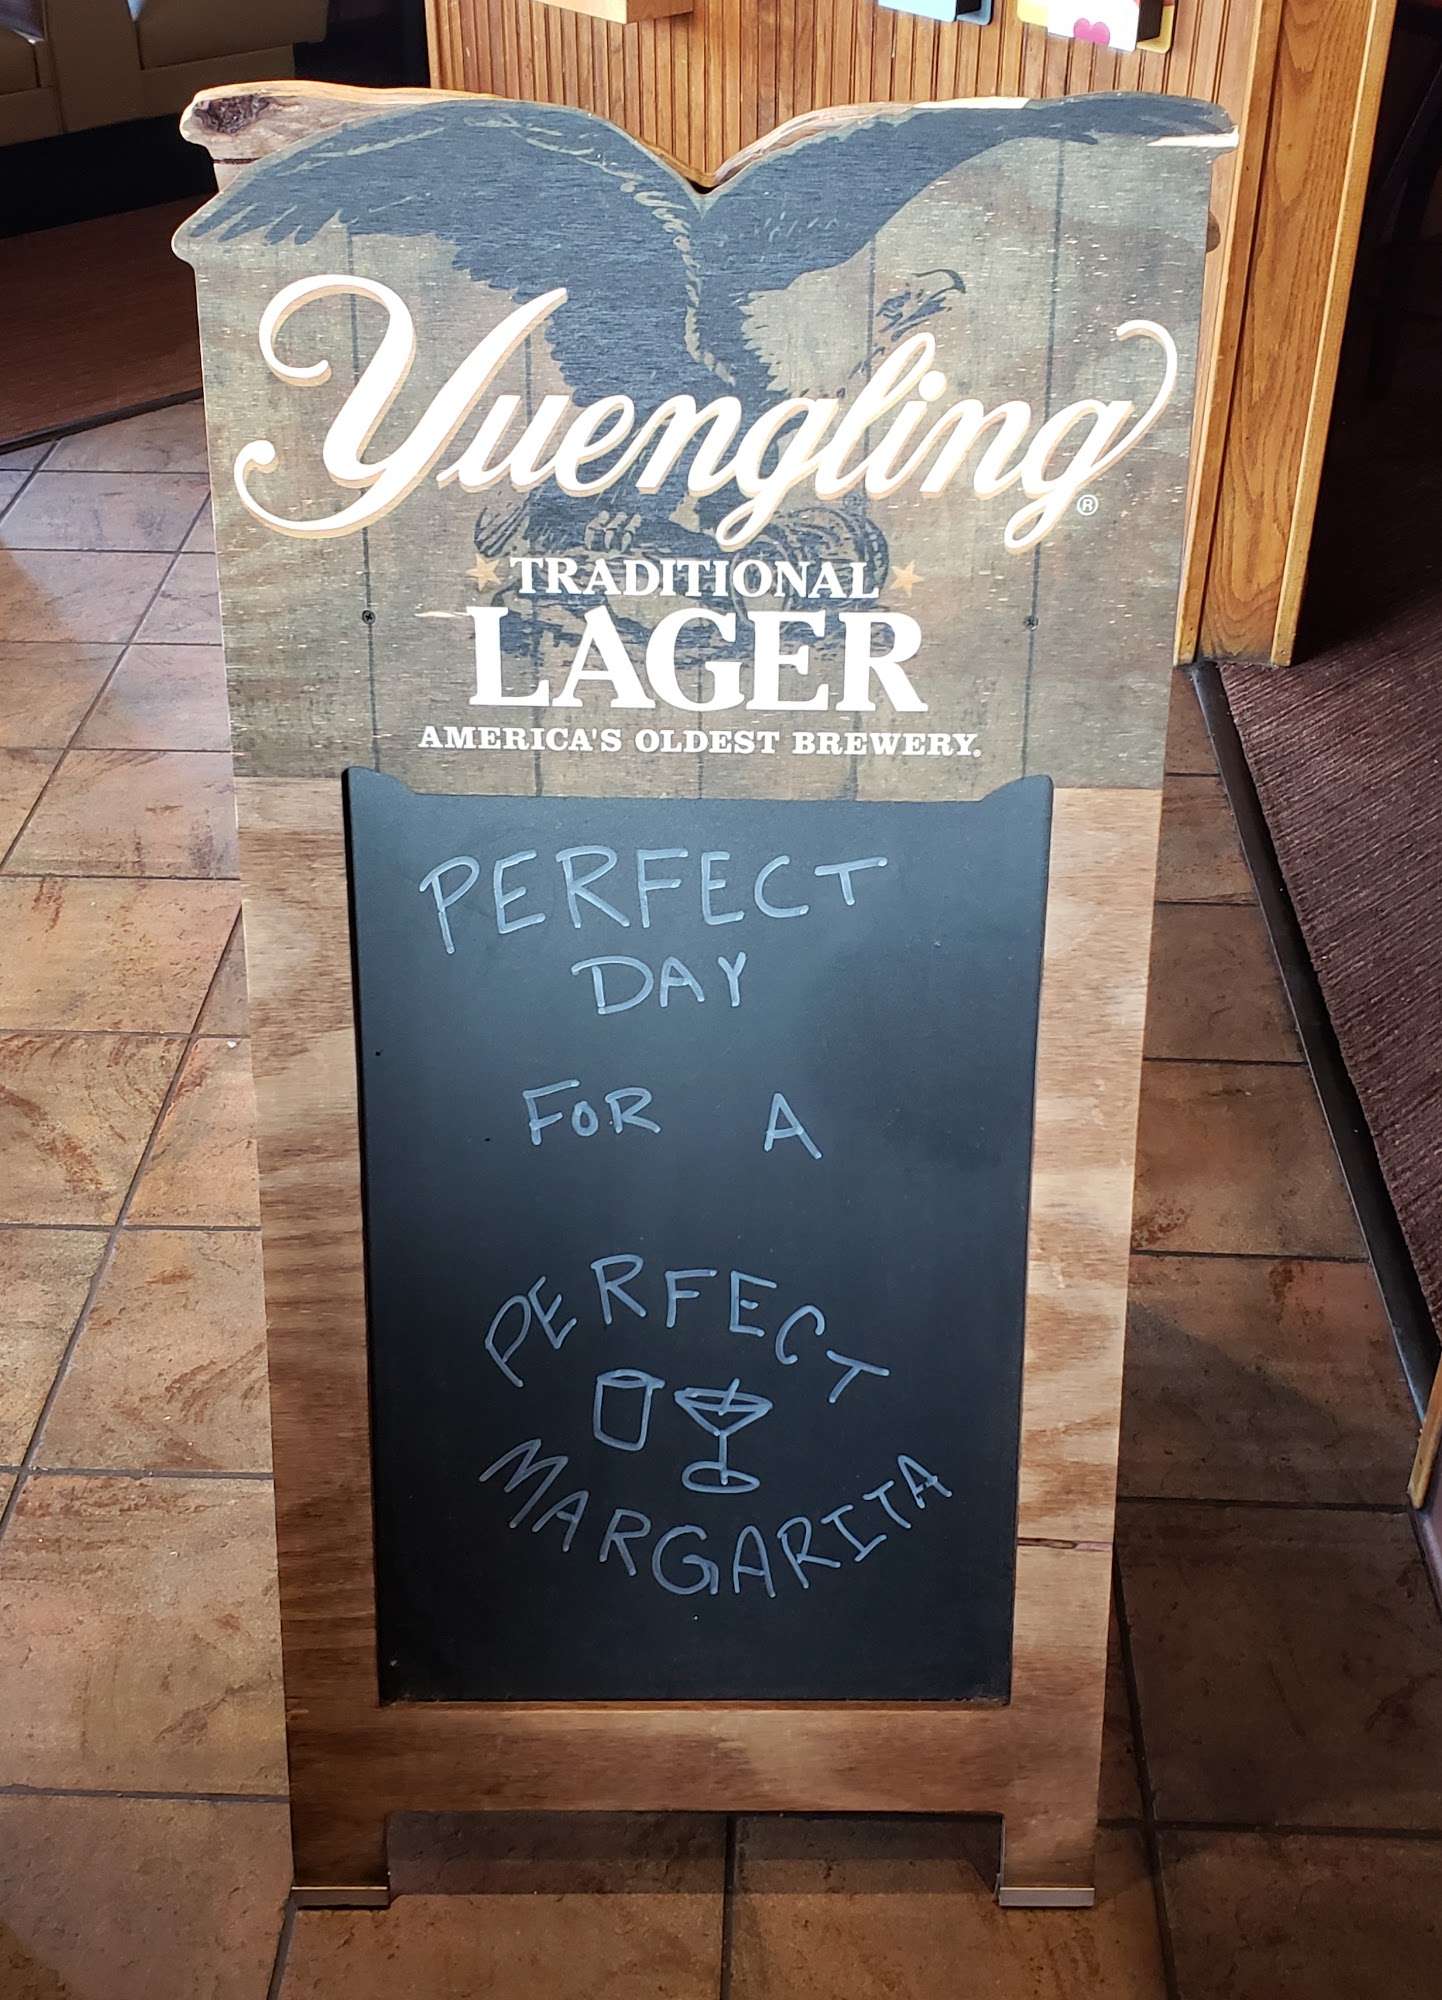 Yuengling®
TRADITIONAL
LAGER
AMERICA'S OLDEST BREWERY.
PERFECT
DAY
FOR A
PERFECT
MARGARITA